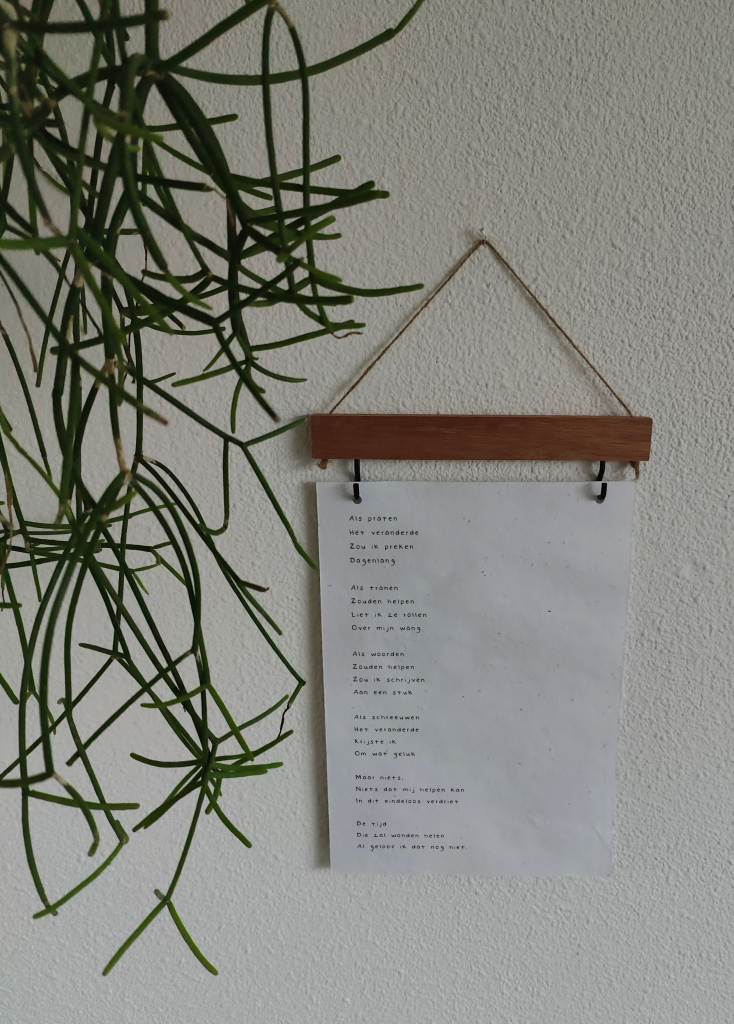 Als praten
Het veranderde
Zou ik preken
Dagenlang.
Als tranen
Zouden helpen
Liet ik ze rollen
Over mijn wang
Als woorden
Zouden helpen
Zou ik schrijven
Aan een stuk
Als schreeuwen
Het veranderde
Krijste ik
Om wat geluk
Maar niets,
Niets dat mij helpen kan
In dit eindeloos verdriet
De tijd
Die zal wonden helen
Al geloof ik dat nog niet.